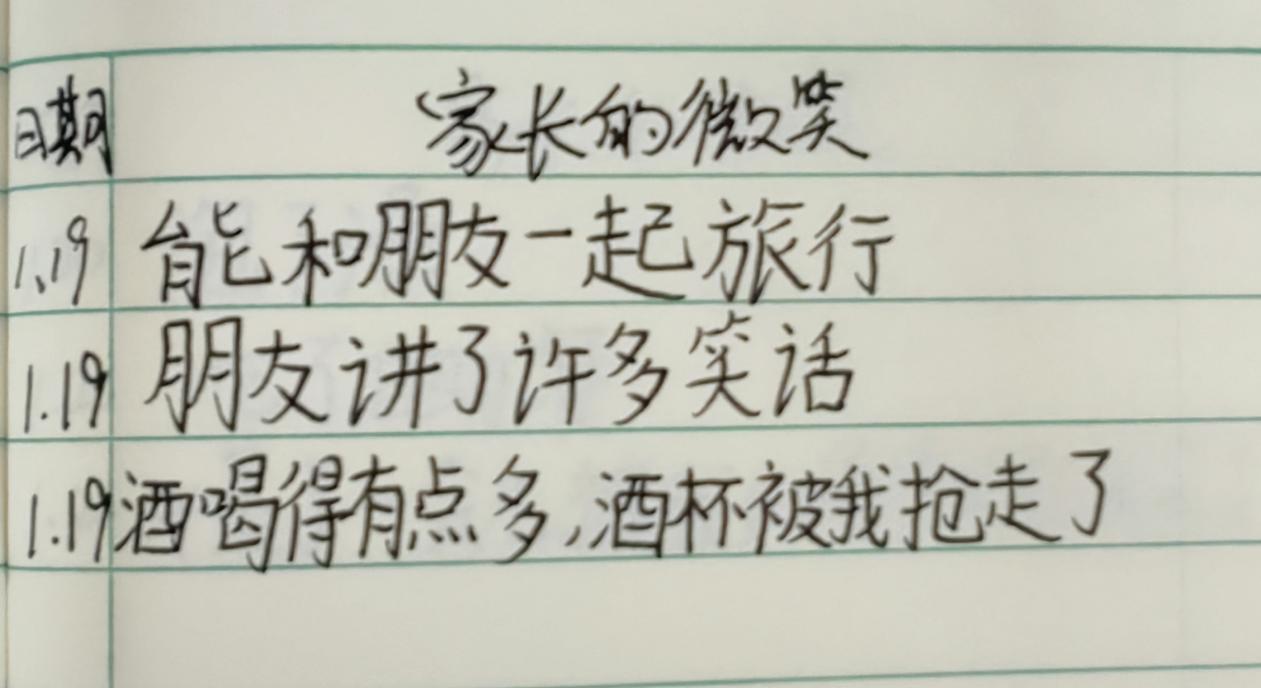 日期 家长的微笑
1.19 能和朋友一起旅行
1.19 朋友讲了许多笑话
1.19 酒喝得有点多,酒杯被我抢走了